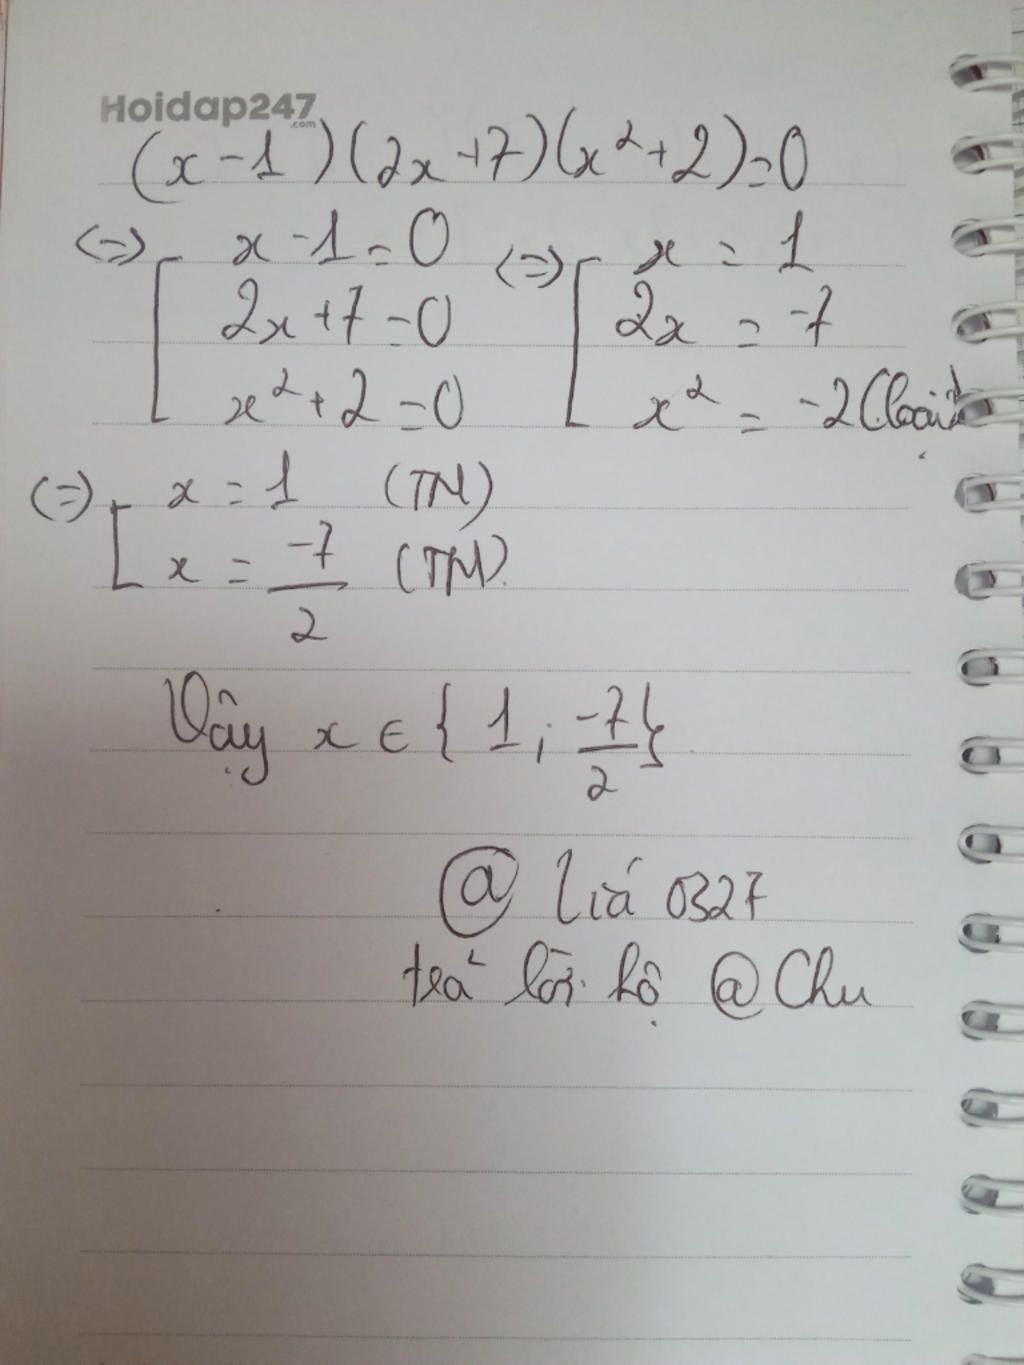 Hoidap247
.com
(x-1)(2x+7)(x²+2)=0
<=> [ x-1=0 <=> [ x = 1
2x+7=0 2x = -7
x²+2=0 x² = -2 (loại)
<=> [ x = 1 (TM)
x = -7/2 (TM).
Vậy x ∈ { 1 ; -7/2 }
@ 0327
trả lời hộ @ Chu